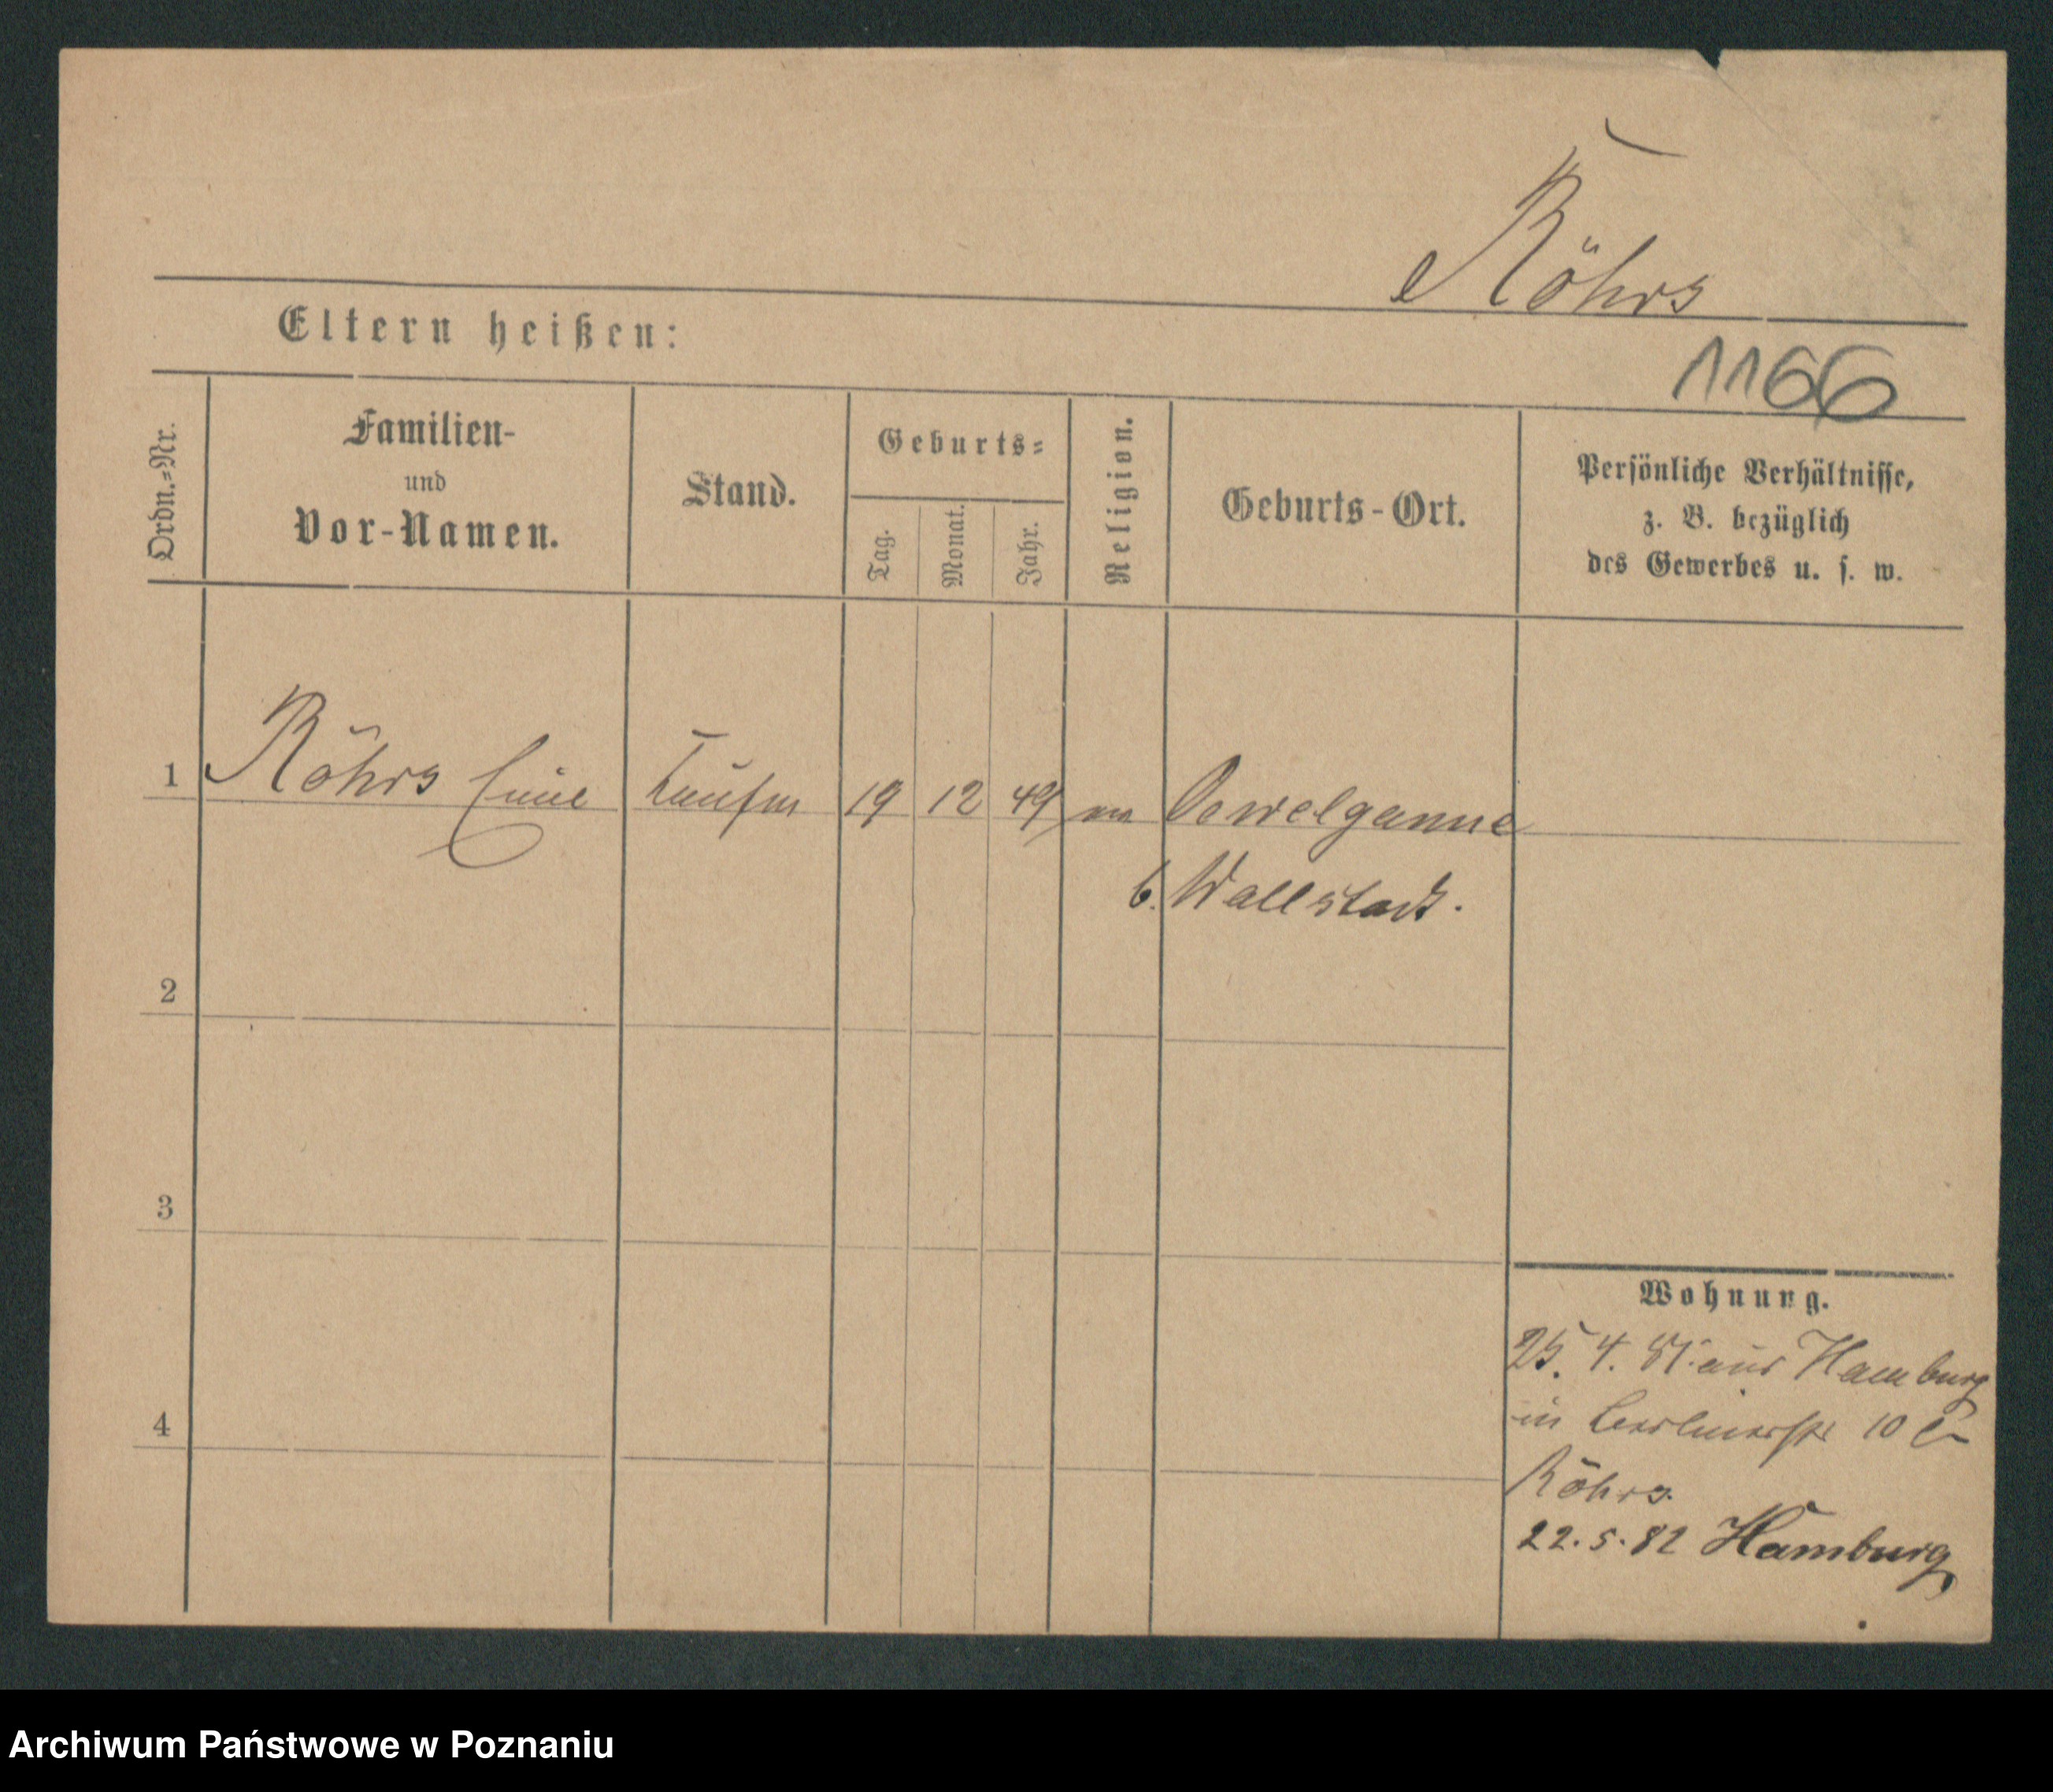 Röhrs
Eltern heißen:
1166
Ordn.=Nr.
Familien-
und
Vor-Namen.
Stand.
Geburts=
Tag.
Monat.
Jahr.
Religion.
Geburts-Ort.
Persönliche Verhältnisse,
z. B. bezüglich
des Gewerbes u. s. w.
1 Röhrs Kaufm 19 12 49 Oevelgönne
b. Wallstadt.
2
3
4
Wohnung.
25. 4. 81. aus Hamburg
in Berlinerstr 10
Röhrs.
22. 5. 82 Hamburg
Archiwum Państwowe w Poznaniu